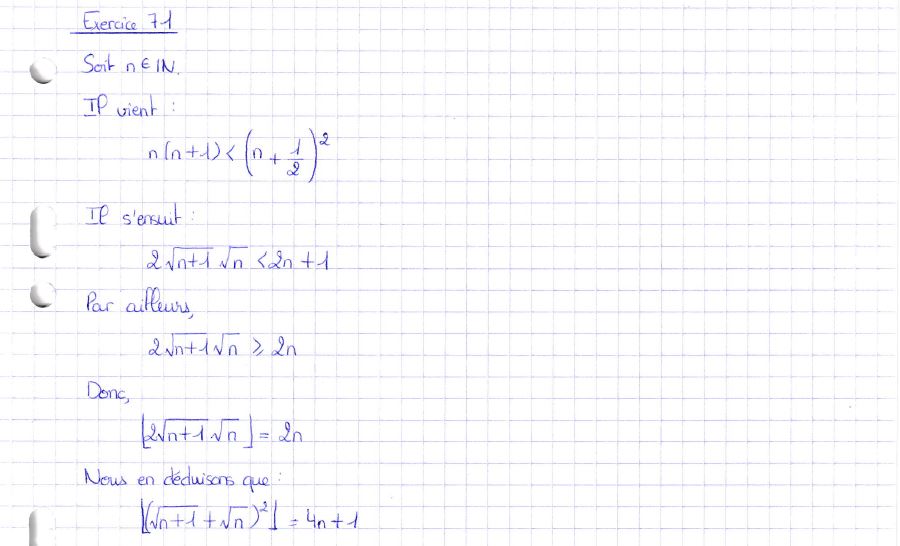 Exercice 71
Soit n ∈ ℕ.
Il vient :
n(n+1) < (n + 1/2)²
Il s'ensuit :
2√(n+1) √n < 2n + 1
Par ailleurs,
2√(n+1) √n ⩾ 2n
Donc,
⌊2√(n+1) √n⌋ = 2n
Nous en déduisons que :
⌊(√(n+1) + √n)²⌋ = 4n + 1